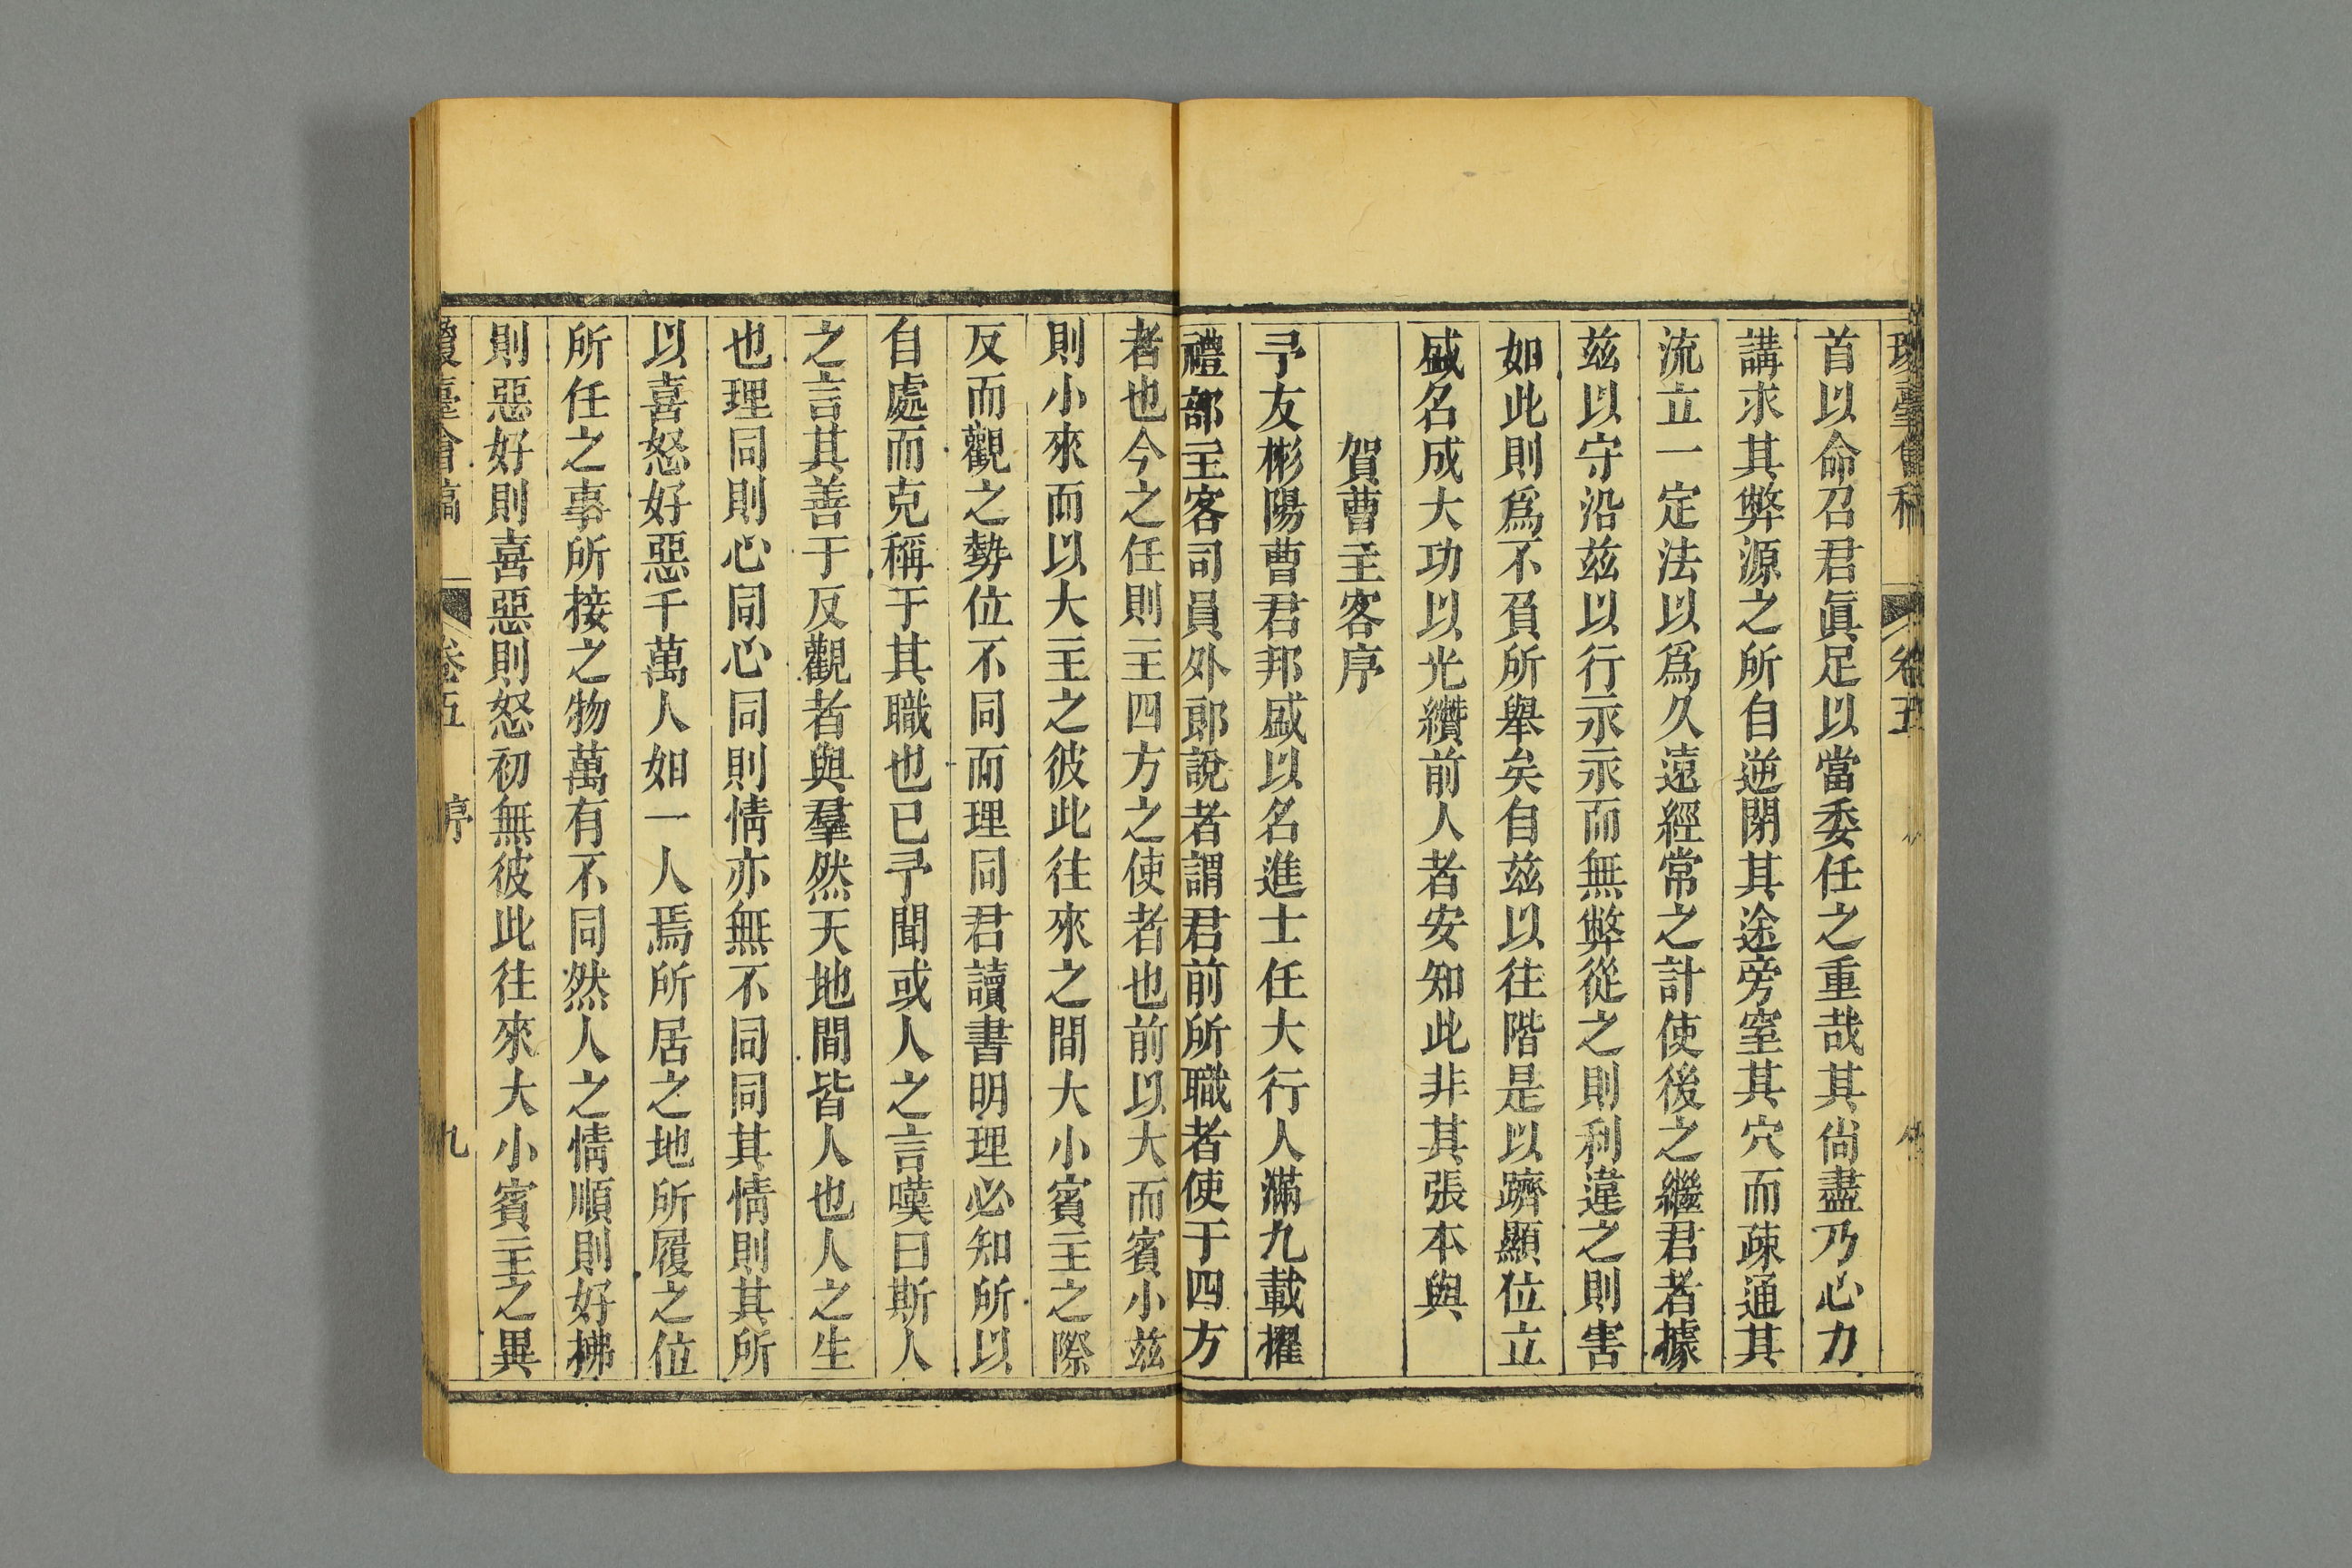 首以命召君眞足以當委任之重哉其尙盡乃心力
講求其弊源之所自逆閉其途旁窒其穴而疎通其
流立一定法以爲久遠經常之計使後之繼君者據
茲以守沿茲以行示示而無弊從之則利違之則害
如此則爲不負所舉矣自茲以往階是以躋顯位立
盛名成大功以光纘前人者安知此非其張本與
賀曹主客序
予友彬陽曹君邦盛以名進士任大行人滿九載擢
禮部主客司員外郎說者謂君前所職者使于四方
者也今之任則主四方之使者也前以大而賓小茲
則小來而以大主之彼此往來之間大小賓主之際
反而觀之勢位不同而理同君讀書明理必知所以
自處而克稱于其職也已予聞或人之言嘆曰斯人
之言其善于反觀者與羣然天地間皆人也人之生
也理同則心同心同則情亦無不同同其情則其所
以喜怒好惡千萬人如一人焉所居之地所履之位
所任之事所接之物萬有不同然人之情順則好拂
則惡好則喜惡則怒初無彼此往來大小賓主之異
瓊臺會稿 卷五 序 九